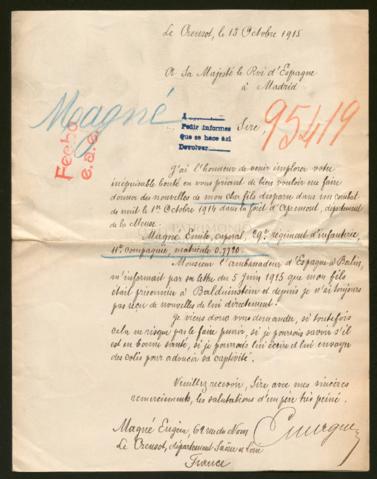 Le Creusot, le 13 Octobre 1915
A Sa Majesté le Roi d'Espagne
à Madrid
Magné
Pedir informes
Que se hace aci
Devolver
Sire,
95419
Fecho
J'ai l'honneur de venir implorer votre
inépuisable bonté en vous priant de bien vouloir me faire
donner des nouvelles de mon cher fils disparu dans un combat
de nuit le 1er Octobre 1914 dans la forêt d'Apremont, département
de la Meuse.
Magné Emile, caporal, 29e régiment d'infanterie
11e compagnie, matricule 0.7720
Monsieur l'Ambassadeur d'Espagne à Berlin,
m'informait par sa lettre du 5 juin 1915 que mon fils
était prisonnier à et depuis je n'ai toujours
pas reçu de nouvelles de lui directement.
Je viens donc vous demander, si toutefois
cela ne risque pas le faire punir, si je pourrais savoir s'il
est en bonne santé, si je pourrais lui écrire et lui envoyer
des colis pour adoucir sa captivité.
Veuillez recevoir, Sire avec mes sincères
remerciements, les salutations d'un père très peiné.
Magné Eugène, 61 rue du Nord
Le Creusot, département Saône et Loire
France